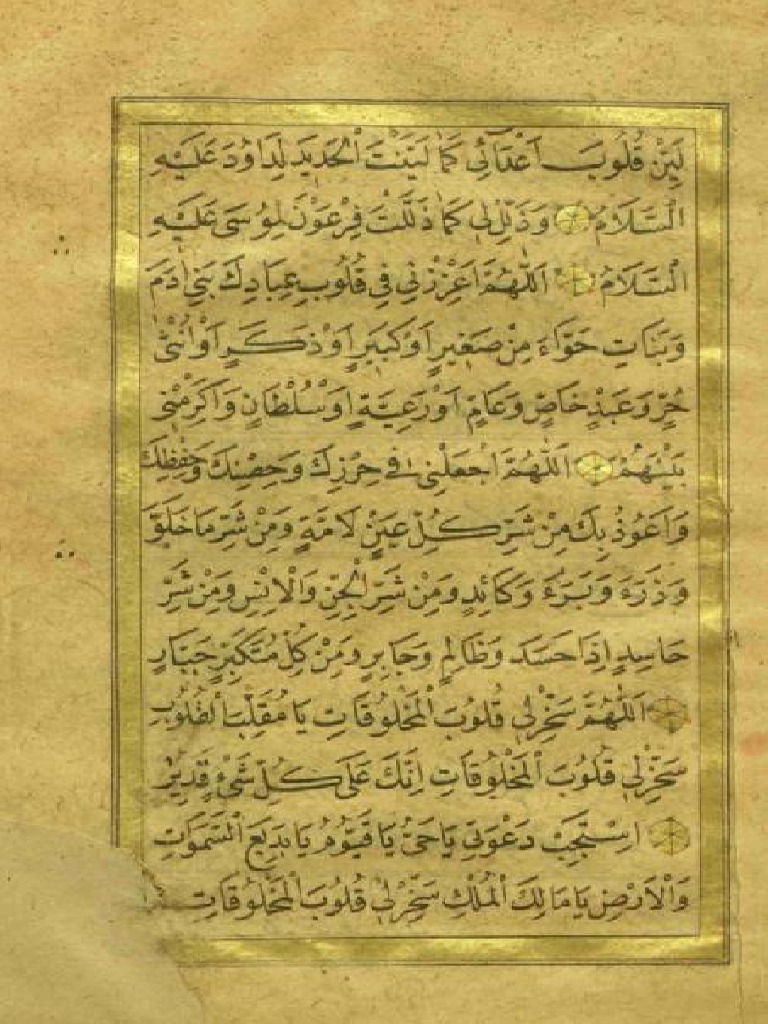 لَيِّنْ قُلُوبَ اَعْدَآئِي كَمَا لَيَّنْتَ الْحَدِيدَ لِدَاوُدَ عَلَيْهِ
السَّلَامُ وَذَلِّلْ لِي كَمَا ذَلَّلْتَ فِرْعَوْنَ لِمُوسَى عَلَيْهِ
السَّلَامُ اَللّٰهُمَّ اَعْزِزْنِي فِي قُلُوبِ عِبَادِكَ بَنِي اٰدَمَ
وَبَنَاتِ حَوَّاءَ مِنْ صَغِيرٍ اَوْ كَبِيرٍ اَوْ ذَكَرٍ اَوْ اُنْثٰى
حُرٍّ وَعَبْدٍ خَاصٍّ وَعَامٍّ اَوْ رَعِيَّةٍ اَوْ سُلْطَانٍ وَاَكْرِمْنِي
بَيْنَهُمْ اَللّٰهُمَّ اجْعَلْنِي فِي حِرْزِكَ وَحِصْنِكَ وَحِفْظِكَ
وَاَعُوذُ بِكَ مِنْ شَرِّ كُلِّ عَيْنٍ لَامَّةٍ وَمِنْ شَرِّ مَا خَلَقَ
وَذَرَءَ وَبَرَءَ وَكَائِدٍ وَمِنْ شَرِّ الْجِنِّ وَالْاِنْسِ وَمِنْ شَرِّ
حَاسِدٍ اِذَا حَسَدَ وَظَالِمٍ وَجَابِرٍ وَمِنْ كُلِّ مُتَكَبِّرٍ جَبَّارٍ
اَللّٰهُمَّ سَخِّرْ لِي قُلُوبَ الْمَخْلُوقَاتِ يَا مُقَلِّبَ الْقُلُوبِ
سَخِّرْ لِي قُلُوبَ الْمَخْلُوقَاتِ اِنَّكَ عَلٰى كُلِّ شَيْءٍ قَدِيرٌ
اِسْتَجِبْ دَعْوَتِي يَا حَيُّ يَا قَيُّومُ يَا بَدِيعَ السَّمٰوَاتِ
وَالْاَرْضِ يَا مَالِكَ الْمُلْكِ سَخِّرْ لِي قُلُوبَ الْمَخْلُوقَاتِ